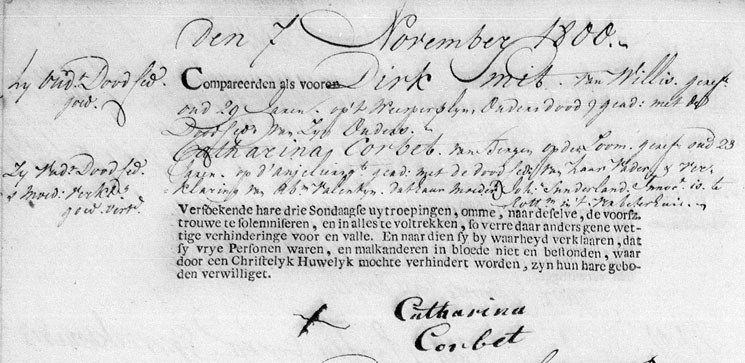 den 7 November 1800.
Compareerden als vooren Dirk Smit. van Willis. geref.
oud 29 Jaren. op't Weesperplyn Ouders dood geads: met de
Doodsed: van Zyn Ouders.
Catharina Corbet. van Bergen op den Zoom. geref: oud 23
Jaren. op d'anjeliers geads: met de doodsed: van haar Vader, & Ver-
klaring van Valentyn. dat haar moeder Joh: Sunderland. is te
Rott:m
zy Oud:s Dood sed.
gew.
Zy Vad:s Dood sed.
& Moed: Verkl:
gew. vert:
Versoekende hare drie Sondaagse uytroepingen, omme, naar deselve, de voorsz.
trouwe te solemniseren, en in alles te voltrekken, so verre daar anders gene wet-
tige verhinderinge voor en valle. En naar dien sy by waarheyd verklaaren, dat
sy vrye Personen waren, en malkanderen in bloede niet en bestonden, waar
door een Christelyk Huwelyk mochte verhindert worden, zyn hun hare gebo-
den verwilliget.
Catharina
Corbet